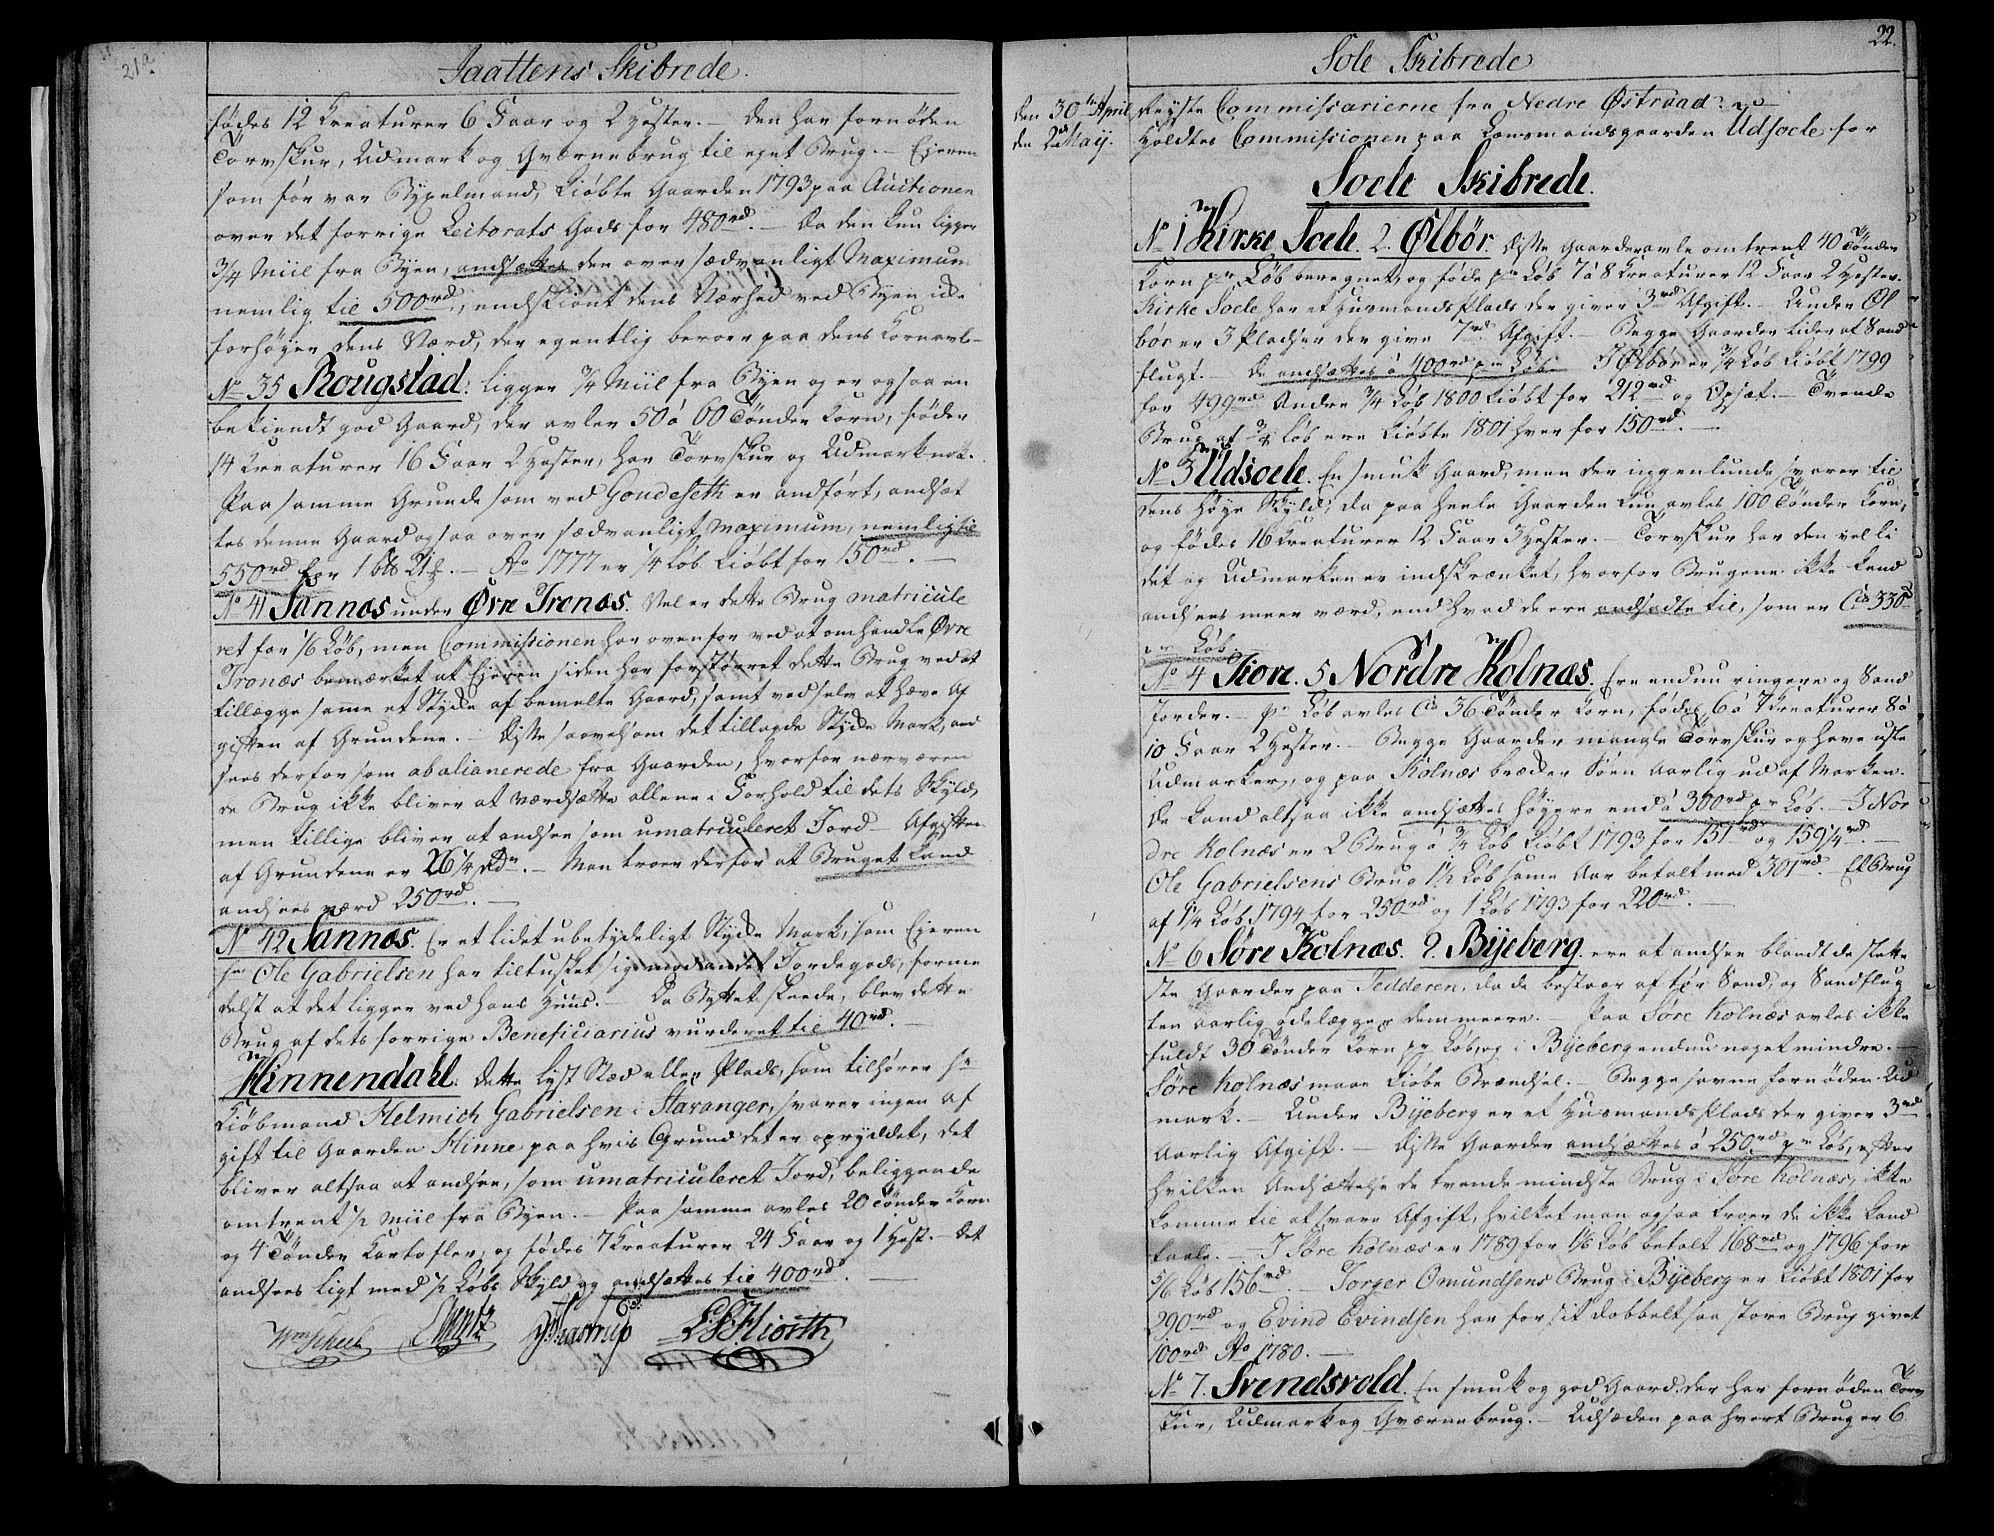 21a
Jaattens Skibrede.
fødes 12 Kreaturer 6 Faar og 2 Hester. – Den har fornøden
Torvskur, Udmark og Qværnebrug til eget Brug. – Ejeren
som før var Byxelmand, kiøbte Gaarden 1793 paa Auctionen
over det forrige Lectorats Gods for 480rd. – Da den kun ligger
3/4 Miil fra Byen, andsættes den over sædvanligt Maximum
nemlig til 500rd, endskiønt dens Nærhed ved Byen ick
forhøyer dens Værd, der egentlig beroer paa dens Kornavl –
No 35 Rougstad: ligger 3/4 Miil fra Byen og er ogsaa en
bekiendt god Gaard, der avler 50 á 60 Tønder Korn, føder
14 Kreaturer 16 Faar 2 Hester, har Torvskur og Udmark nok.
Paa samme Grunde som ved Gondeseth er andført, andsæt
tes denne Gaard ogsaa over sædvanligt Maximum, nemlig til
550rd for 1 . – Ao 1777 er 1/4 Løb kiøbt for 150rd. –
No 41 Sannæs under Øvre Tronæs. Vel er dette Brug matricule
ret for 1/6 Løb, men Commissionen har ovenfor ved at omhandle Øvre
Tronæs bemærket at Ejeren siden har forstørret dette Brug ved at
tillægge samme et Stykke af bemelte Gaard, samt ved selv at hæve Af
giften af Grundene. – Disse saavelsom det tillagde Stykke Mark, and
sees derfor som abalianerede fra Gaarden, hvorfor nærværen
de Brug ikke bliver at værdsætte allene i Forhold til dets Skyld,
men tillige bliver at andsee som umatriculeret Jord – Afgiften
af Grundene er 26 1/4 Rdr. – Man troer derfor at Bruget kand
andsees værd 250rd. –
No 42 Sannæs. Er et lidet ubetydeligt Stykke Mark, som Ejeren
Hr Ole Gabrielsen har tiltusket sig mod andet Jordegods, forme
delst at det ligger ved hans Huus. – Da Byttet skeede, blev dette
Brug af dets forrige Beneficiarius vurderet til 40rd. –
Hinnendahl. Dette Lyst Stæd eller Plads, som tilhører Hr
Kiøbmand Helmich Gabrielsen i Stavanger, svarer ingen af
gift til Gaarden Hinne paa hvis Grund det er opryddet, det
bliver altsaa at andsee, som umatriculeret Jord, beliggende
omtrent 1/2 Miil fra Byen. – Paa samme avles 20 Tønder Korn
og 4 Tønder Kartofler, og fødes 7 Kreaturer 24 Faar og 1 Hest. – Det
andsees ligt med 1/2 Løbs Skyld og andsættes til 400rd. –
Wm Scheel
Hiorth
22.
Sole Skibrede
den 30te April Reyste Commissarierne fra Nedre Østraad. –
den 2d May. Holdtes Commissionen paa Lensmandsgaarden Udsoele for
Soele Skibrede.
No 1 Kirke Soele. 2. Ølbør. Disse Gaarder avle omtrent 40 Tønder
Korn pr Løb beregnet, og føde pr Løb 7 à 8 Kreaturer 12 Faar 2 Hester.
Kirke Soele har et Huusmands Plads der giver 3rd Afgift. – Under Øl
bør er 3 Pladser der give 7rd Afgift. – Begge Gaarder lider af Sand
flugt. – De andsættes à 400rd pr Løb. – I Ølbør er 3/4 Løb kiøbt 1799
for 499rd Andre 3/4 Løb 1800 kiøbt for 212rd og Opsæt. – Tvende
Brug af 3/4 Løb ere kiøbte 1801 hver for 150rd. –
No 3 Udsoele. En smuk Gaard, men der ingenlunde svarer til
dens høye Skyld, da paa heele Gaarden kun avles 100 Tønder Korn,
og fødes 16 Kreaturer 12 Faar 3 Hester. – Torvskur har den vel li
det og Udmarken er indskrænket, hvorfor Brugene ikke kand
andsees meer værd, end hvad de ere andsadte til, som er Ca 330rd
pr Løb.
No 4 Tiore. 5 Nordre Kolnæs. Ere endnu ringere og Sand
Jorder. – Pr Løb avles Ca 36 Tønder Korn, fødes 6 à 7 Kreaturer 8 à
10 Faar 2 Hester. – Begge Gaarder mangle Torvskur og have usle
Udmarker, og paa Kolnæs bræder Søen Aarlig ud af Marken.
De kand altsaa ikke andsættes høyere end à 300rd pr Løb. – I Nor
dre Kolnæs er 2 Brug à 3/4 Løb kiøbt 1793 for 151rd og 159 1/4rd. –
Ole Gabrielsens Brug 1 1/2 Løb same Aar betalt med 301rd. – Et Brug
af 1 1/4 Løb 1794 for 250rd og 1 Løb 1793 for 220rd. –
No 6 Søre Kolnæs. 9. Byeberg. ere at andsee blandt de slette
ste Gaarder paa Jedderen, da de bestaar af tør Sand, og Sandflug
ten aarlig ødelægger dem meere. – Paa Søre Kolnæs avles ikke
fuldt 30 Tønder Korn pr Løb, og i Byeberg endnu noget mindre. –
Søre Kolnæs maae kiøbe Brændsel. – Begge savne fornøden Ud
mark. – Under Byeberg er et Huusmands Plads der giver 3rd
Aarlig Afgift. – Disse Gaarder andsættes à 250rd pr Løb, efter
hvilken Andsættelse de tvende mindste Brug i Søre Kolnæs, ikke
komme til at svare Afgift, hvilket man ogsaa troer de ikke kand
taale. – I Søre Kolnæs er 1789 for 1 1/6 Løb betalt 168rd og 1796 for
5/6 Løb 156rd. – Torger Omundsens Brug i Byeberg er kiøbt 1801 for
290rd og Evind Evindsen har for sit dobbelt saa store Brug givet
100rd Ao 1780. –
No 7. Svendsvold. En smuk og god Gaard, der har fornøden Torv
skur, Udmark og Qværnebrug. – Udsæden paa hvert Brug er 6